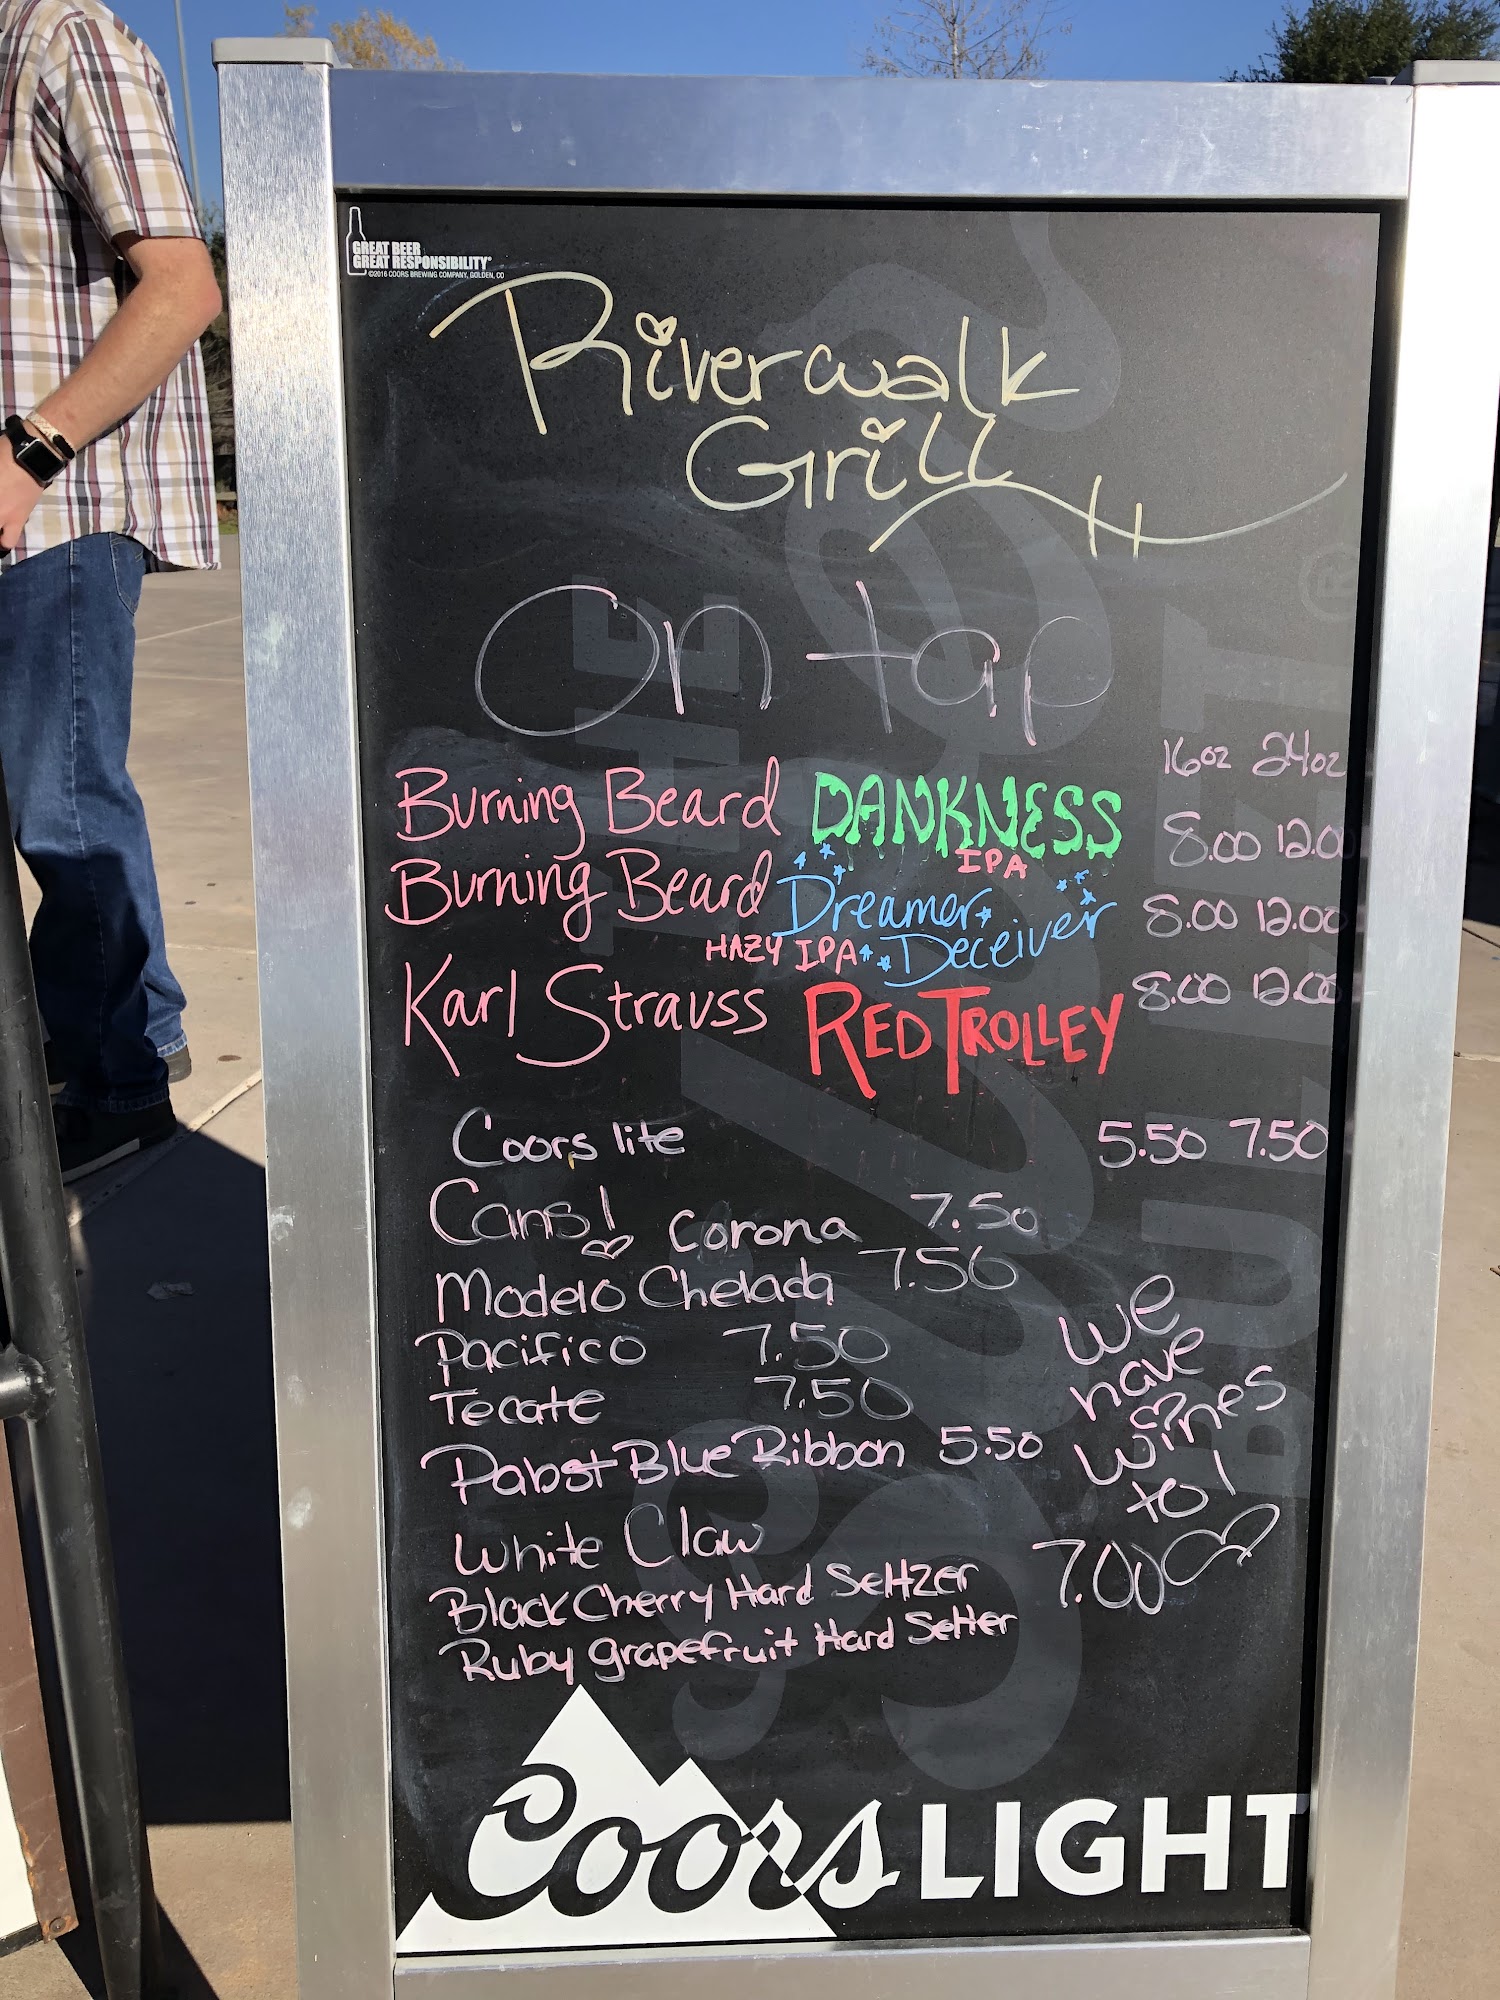 GREAT BEER
GREAT RESPONSIBILITY®
©2016 COORS BREWING COMPANY, GOLDEN, CO
Riverwalk
Grill
On tap
16oz 24oz
Burning Beard DANKNESS 8.00 12.00
IPA
Burning Beard Dreamer 8.00 12.00
HAZY IPA Deceiver
Karl Strauss RED TROLLEY 8.00 12.00
Coors lite 5.50 7.50
Cans! Corona 7.50
Modelo Chelada 7.50
Pacifico 7.50
Tecate 7.50
Pabst Blue Ribbon 5.50
We
have
wines
to!
White Claw 7.00
Black Cherry Hard Seltzer
Ruby grapefruit Hard Seltter
THE
SILVER
BULLET®
Coors LIGHT